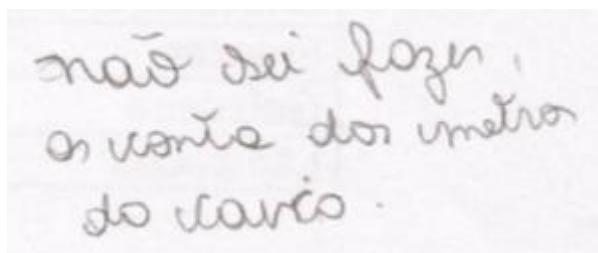 não sei fazer,
as conta dos metros
do carrco.